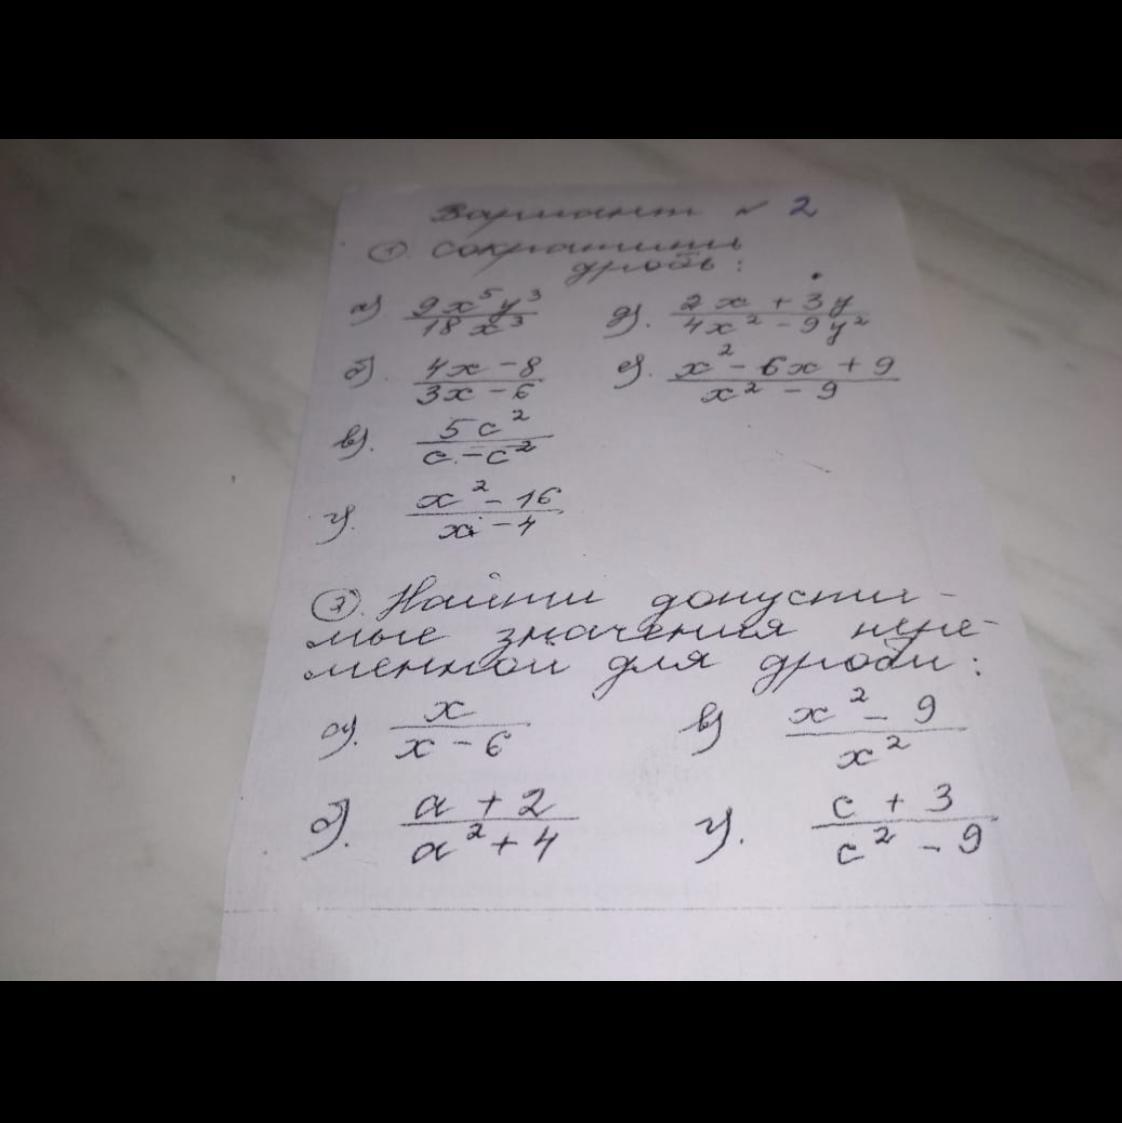 Вариант № 2
① Сократить
дробь:
а) 9x⁵y³/18x³ д). 2x + 3y/4x² - 9y²
б). 4x - 8/3x - 6 е). x² - 6x + 9/x² - 9
в). 5c²/c - c²
г). x² - 16/x - 4
②. Найти допусти-
мые значения пере-
менной для дроби:
а). x/x - 6 в) x² - 9/x²
б). a + 2/a² + 4 г). c + 3/c² - 9